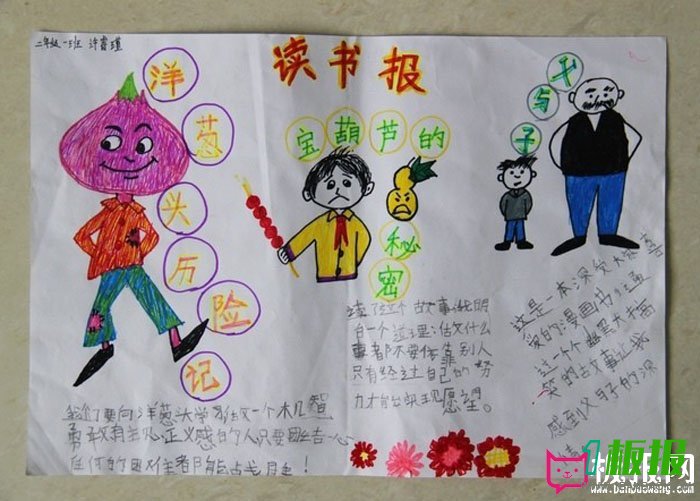 二年级一班 许睿瑾
读书报
洋葱头历险记
宝葫芦的秘密
父与子
读了这个故事我明
白一个道理:做什么
事都不要依靠别人
只有经过自己的努
力才能实现愿望。
这是一本深受大家喜
爱的漫画书
一个个幽默大
笑的故事让我
感到父子的深
我们要向洋葱头学习做一个机智
勇敢有主见正义感的人只要团结一心
任何的困难者都能占戈月生!
板报网
www.banbaowang.com